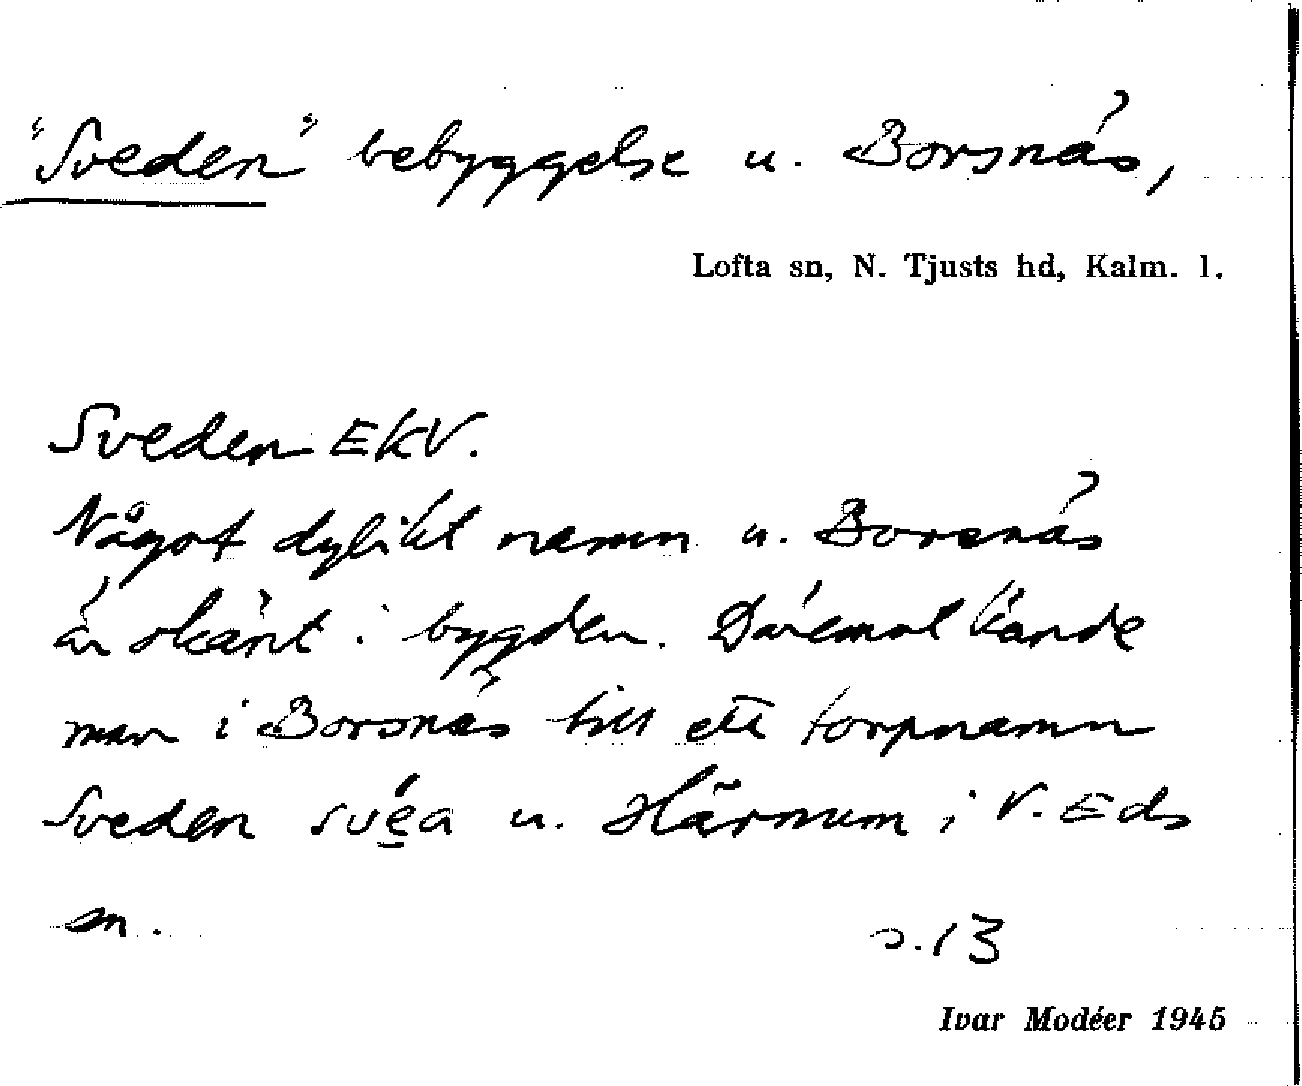 "Sveden" bebyggelse u. Borsnäs,
Lofta sn, N. Tjusts hd, Kalm. l.
Sveden EKV.
Något dylikt namn u. Borsnäs
är okänt i bygden. Däremot kände
man i Borsnäs till ett torpnamn
Sveden svéa u. Härnum i V. Eds
sn.
s. 13
Ivar Modéer 1945